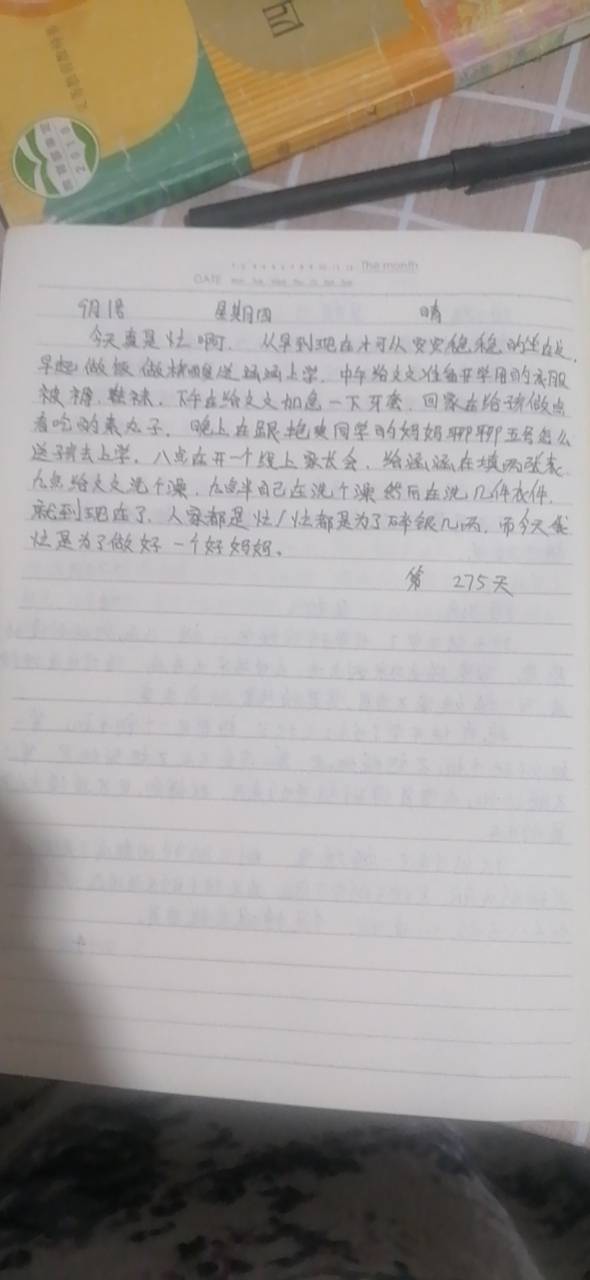 The month
DATE
9月1号 星期四 晴
今天真是忙啊. 从早到现在才可以安安稳稳的坐在这.
早起做饭做核酸送涵涵上学. 中午给文文准备开学用的衣服
被褥. 鞋袜. 下午在给文文加急一下牙套. 回家在给孩做点
看吃的素丸子. 晚上在跟他爽同学的妈妈聊聊五号怎么
送子孩去上学. 八点在开一个线上家长会. 给涵涵在填两张表.
九点给文文洗个澡. 九点半自己在洗个澡然后在洗几件衣件.
就到现在了. 人家都是忙/忙都是为了碎银几两. 而今天我
忙是为了做好一个好妈妈。
第 275天